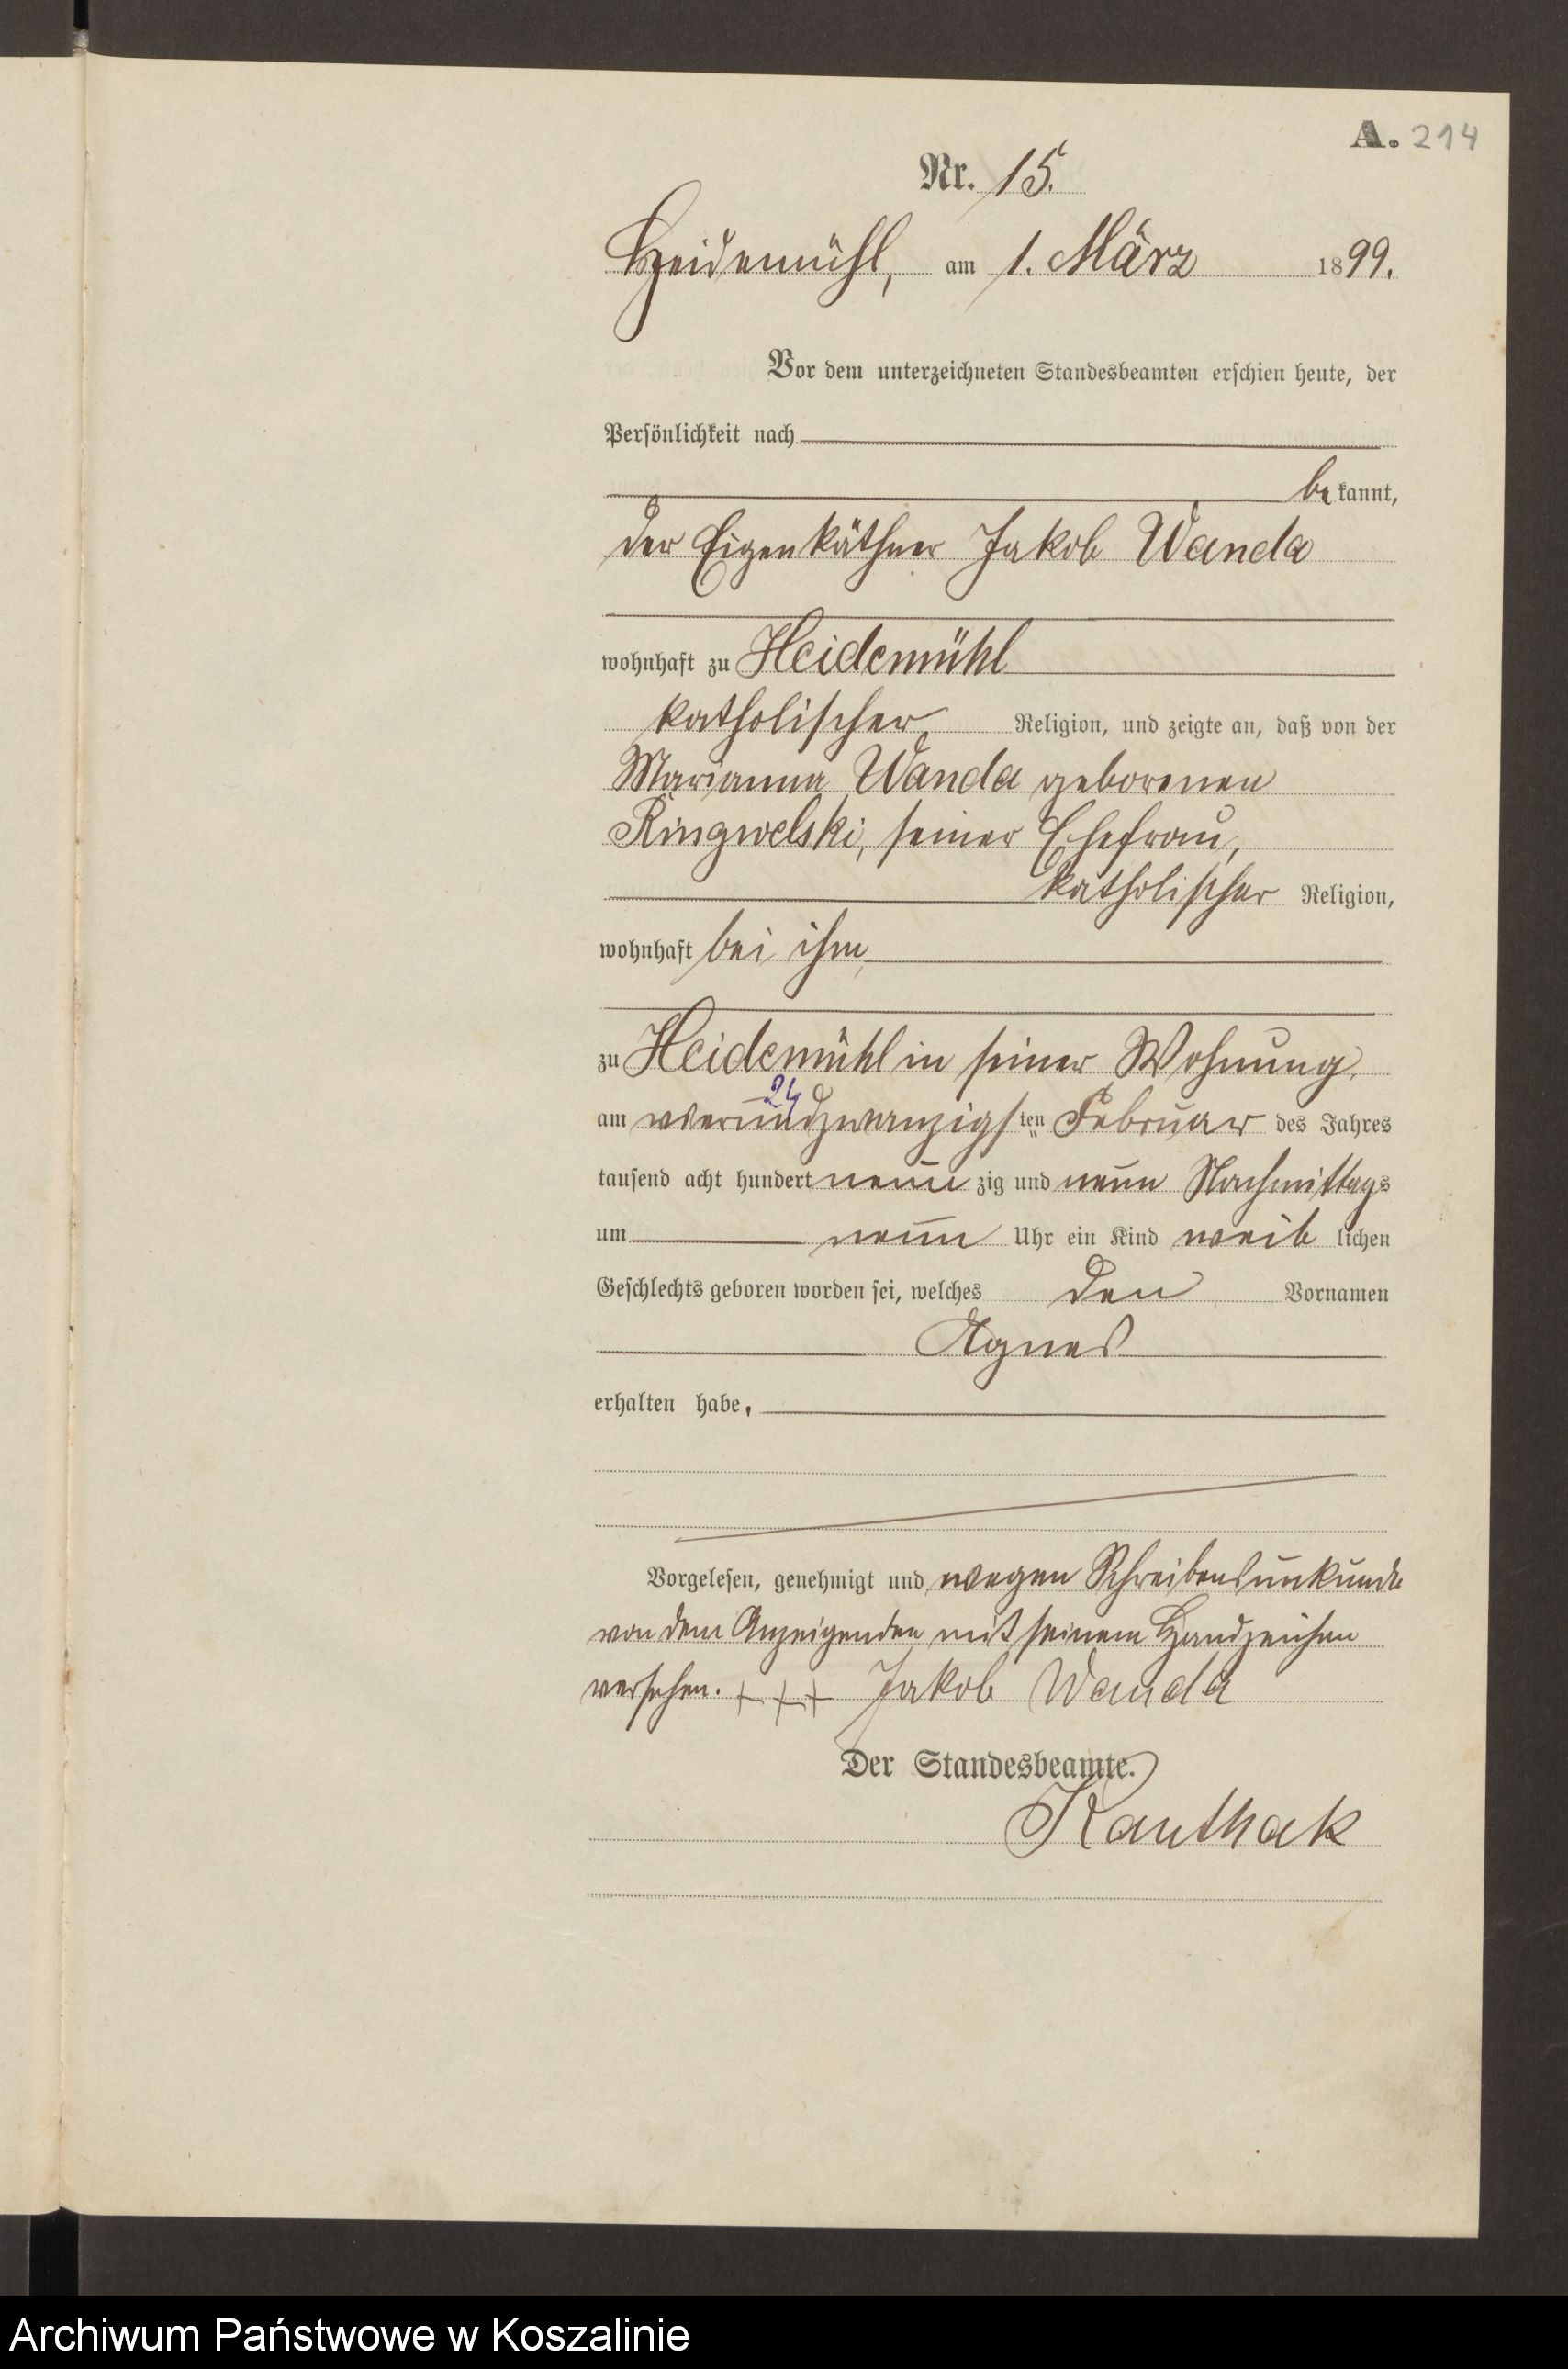 A. 214
Nr. 15.
Heidemühl, am 1. März 1899.
Vor dem unterzeichneten Standesbeamten erschien heute, der
Persönlichkeit nach
be kannt,
der Eigenkäthner Jakob Wanda
wohnhaft zu Heidemühl
katholischer Religion, und zeigte an, daß von der
Marianna Wanda geborenen
Ringwelski, seiner Ehefrau,
katholischer Religion,
wohnhaft bei ihm
zu Heidemühl in seiner Wohnung
24
am vierundzwanzigsten Februar des Jahres
tausend acht hundert neun zig und neun Nachmittags
um neun Uhr ein Kind weib lichen
Geschlechts geboren worden sei, welches den Vornamen
Agnes
erhalten habe,
Vorgelesen, genehmigt und wegen Schreibensunkunde
von dem Anzeigenden mit seinem Handzeichen
versehen. +++ Jakob Wanda
Der Standesbeamte.
Kauthak
Archiwum Państwowe w Koszalinie